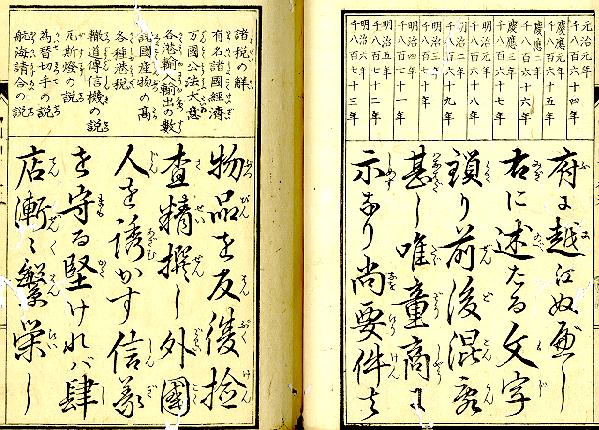 元治元年
千八百六十四年
慶應元年
千八百六十五年
慶應二年
千八百六十六年
慶應三年
千八百六十七年
明治元年
千八百六十八年
明治二年
千八百六十九年
明治三年
千八百七十年
明治四年
千八百七十一年
明治五年
千八百七十二年
明治六年
千八百七十三年
府に越江ぬべし
右に述たる文字
鎖り前後混乱
甚し唯童商に
示なり尚要件を
諸税の解
有名諸國經濟
万國公法大意
各港輸入輸出の數
諸國産物の高
各種港税
鐵道傳信機の説
瓦斯燈の説
為替切手の説
航海請合の説
物品を反復撿
査精撰し外國
人を誘かす信義
を守る堅ければ肆
店漸々繁栄し